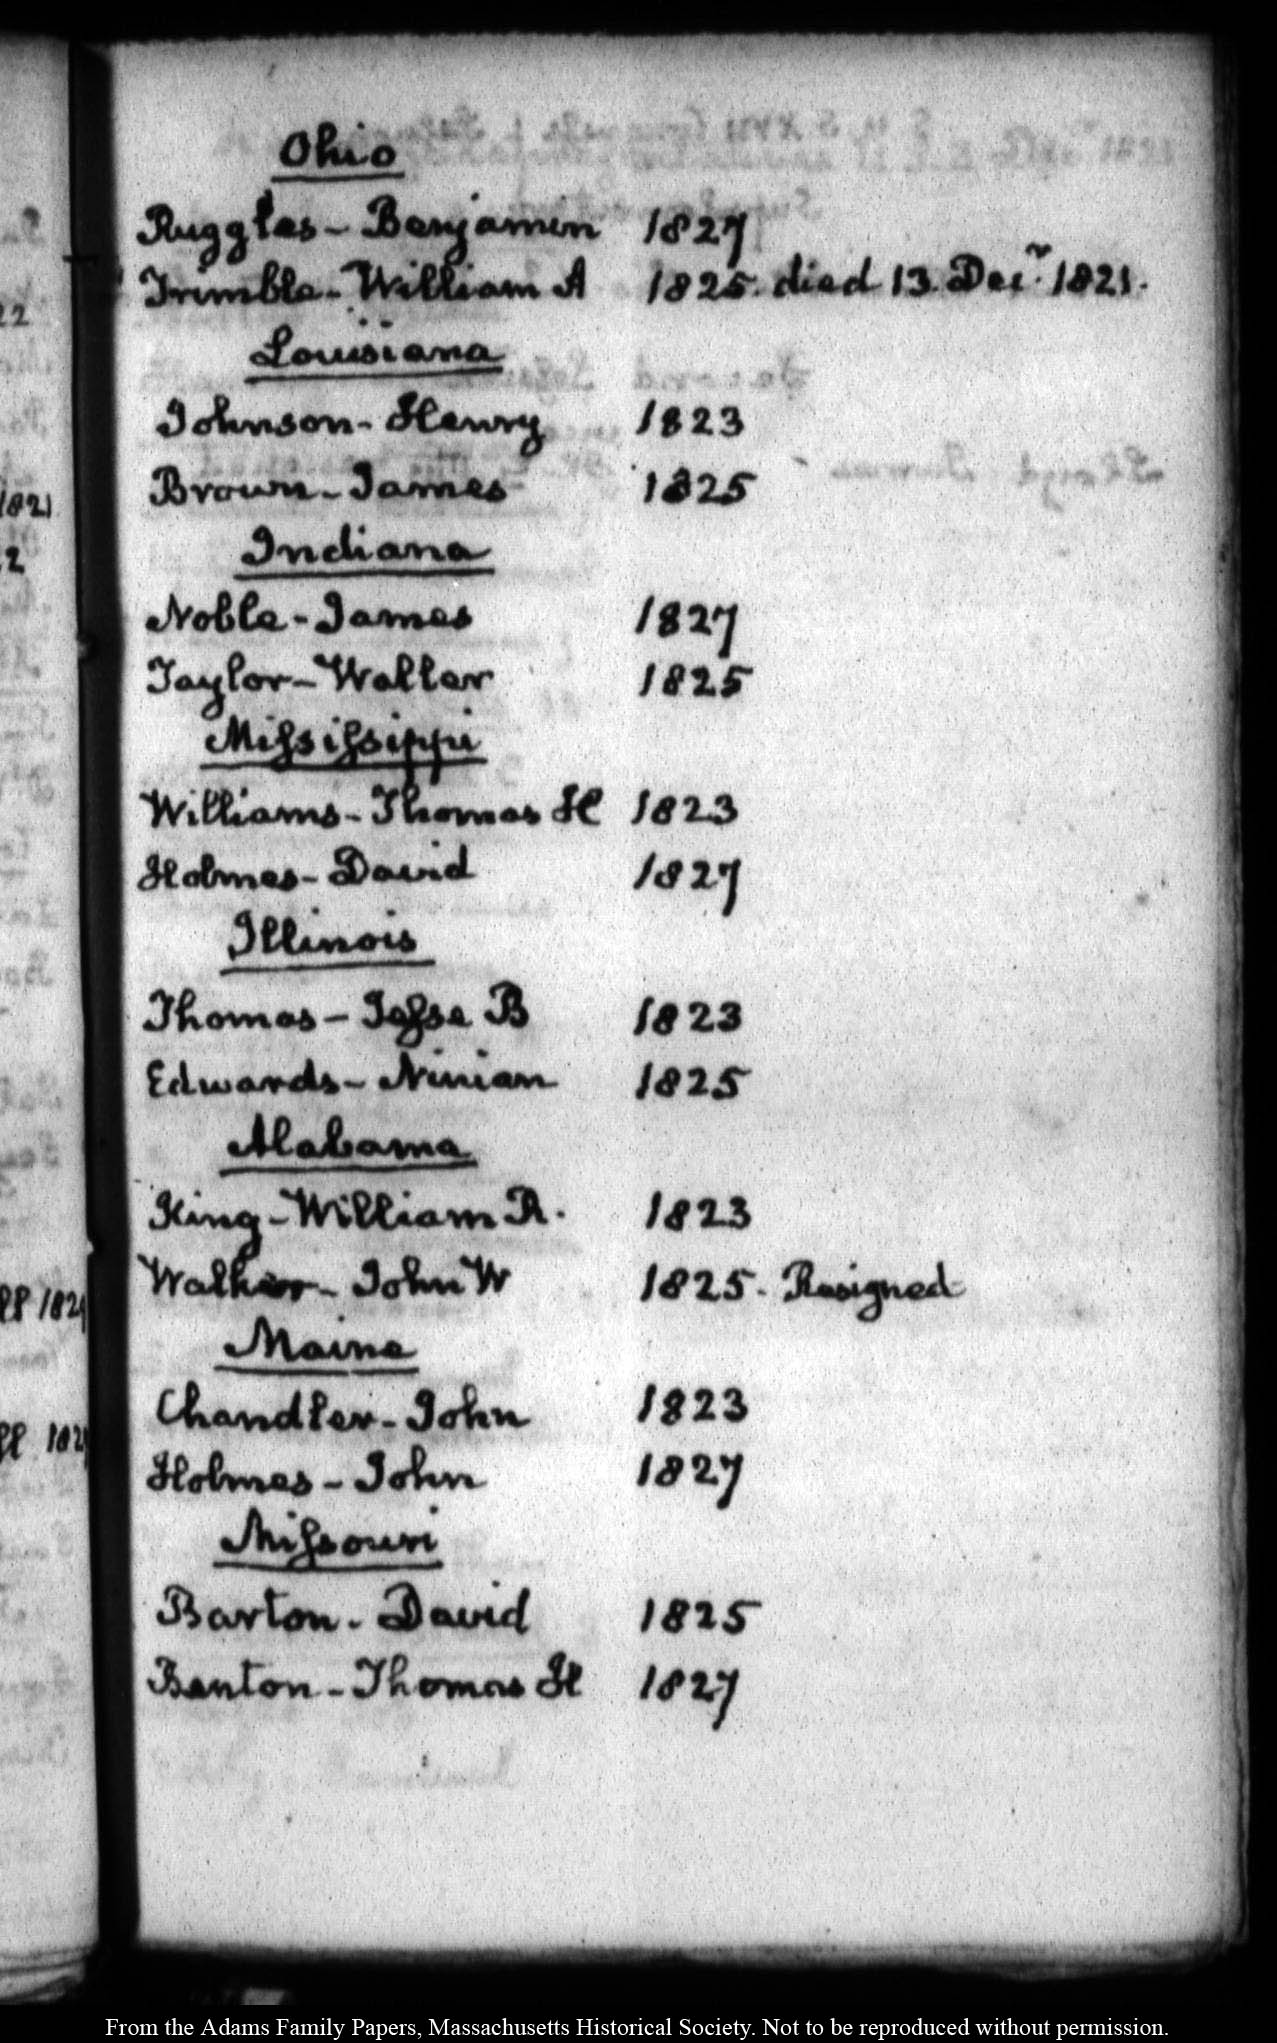 Ohio
Ruggles - Benjamin 1827
Trimble - William A 1825. died 13. Decr. 1821.
Louisiana
Johnson - Henry 1823
Brown - James 1825
Indiana
Noble - James 1827
Taylor - Waller 1825
Mifsifsippi
Williams - Thomas H 1823
Holmes - David 1827
Illinois
Thomas - Jefse B 1823
Edwards - Ninian 1825
Alabama
King - William R. 1823
Walker - John W 1825. Resigned
Maine
Chandler - John 1823
Holmes - John 1827
Mifsouri
Barton - David 1825
Benton - Thomas H 1827
From the Adams Family Papers, Massachusetts Historical Society. Not to be reproduced without permission.